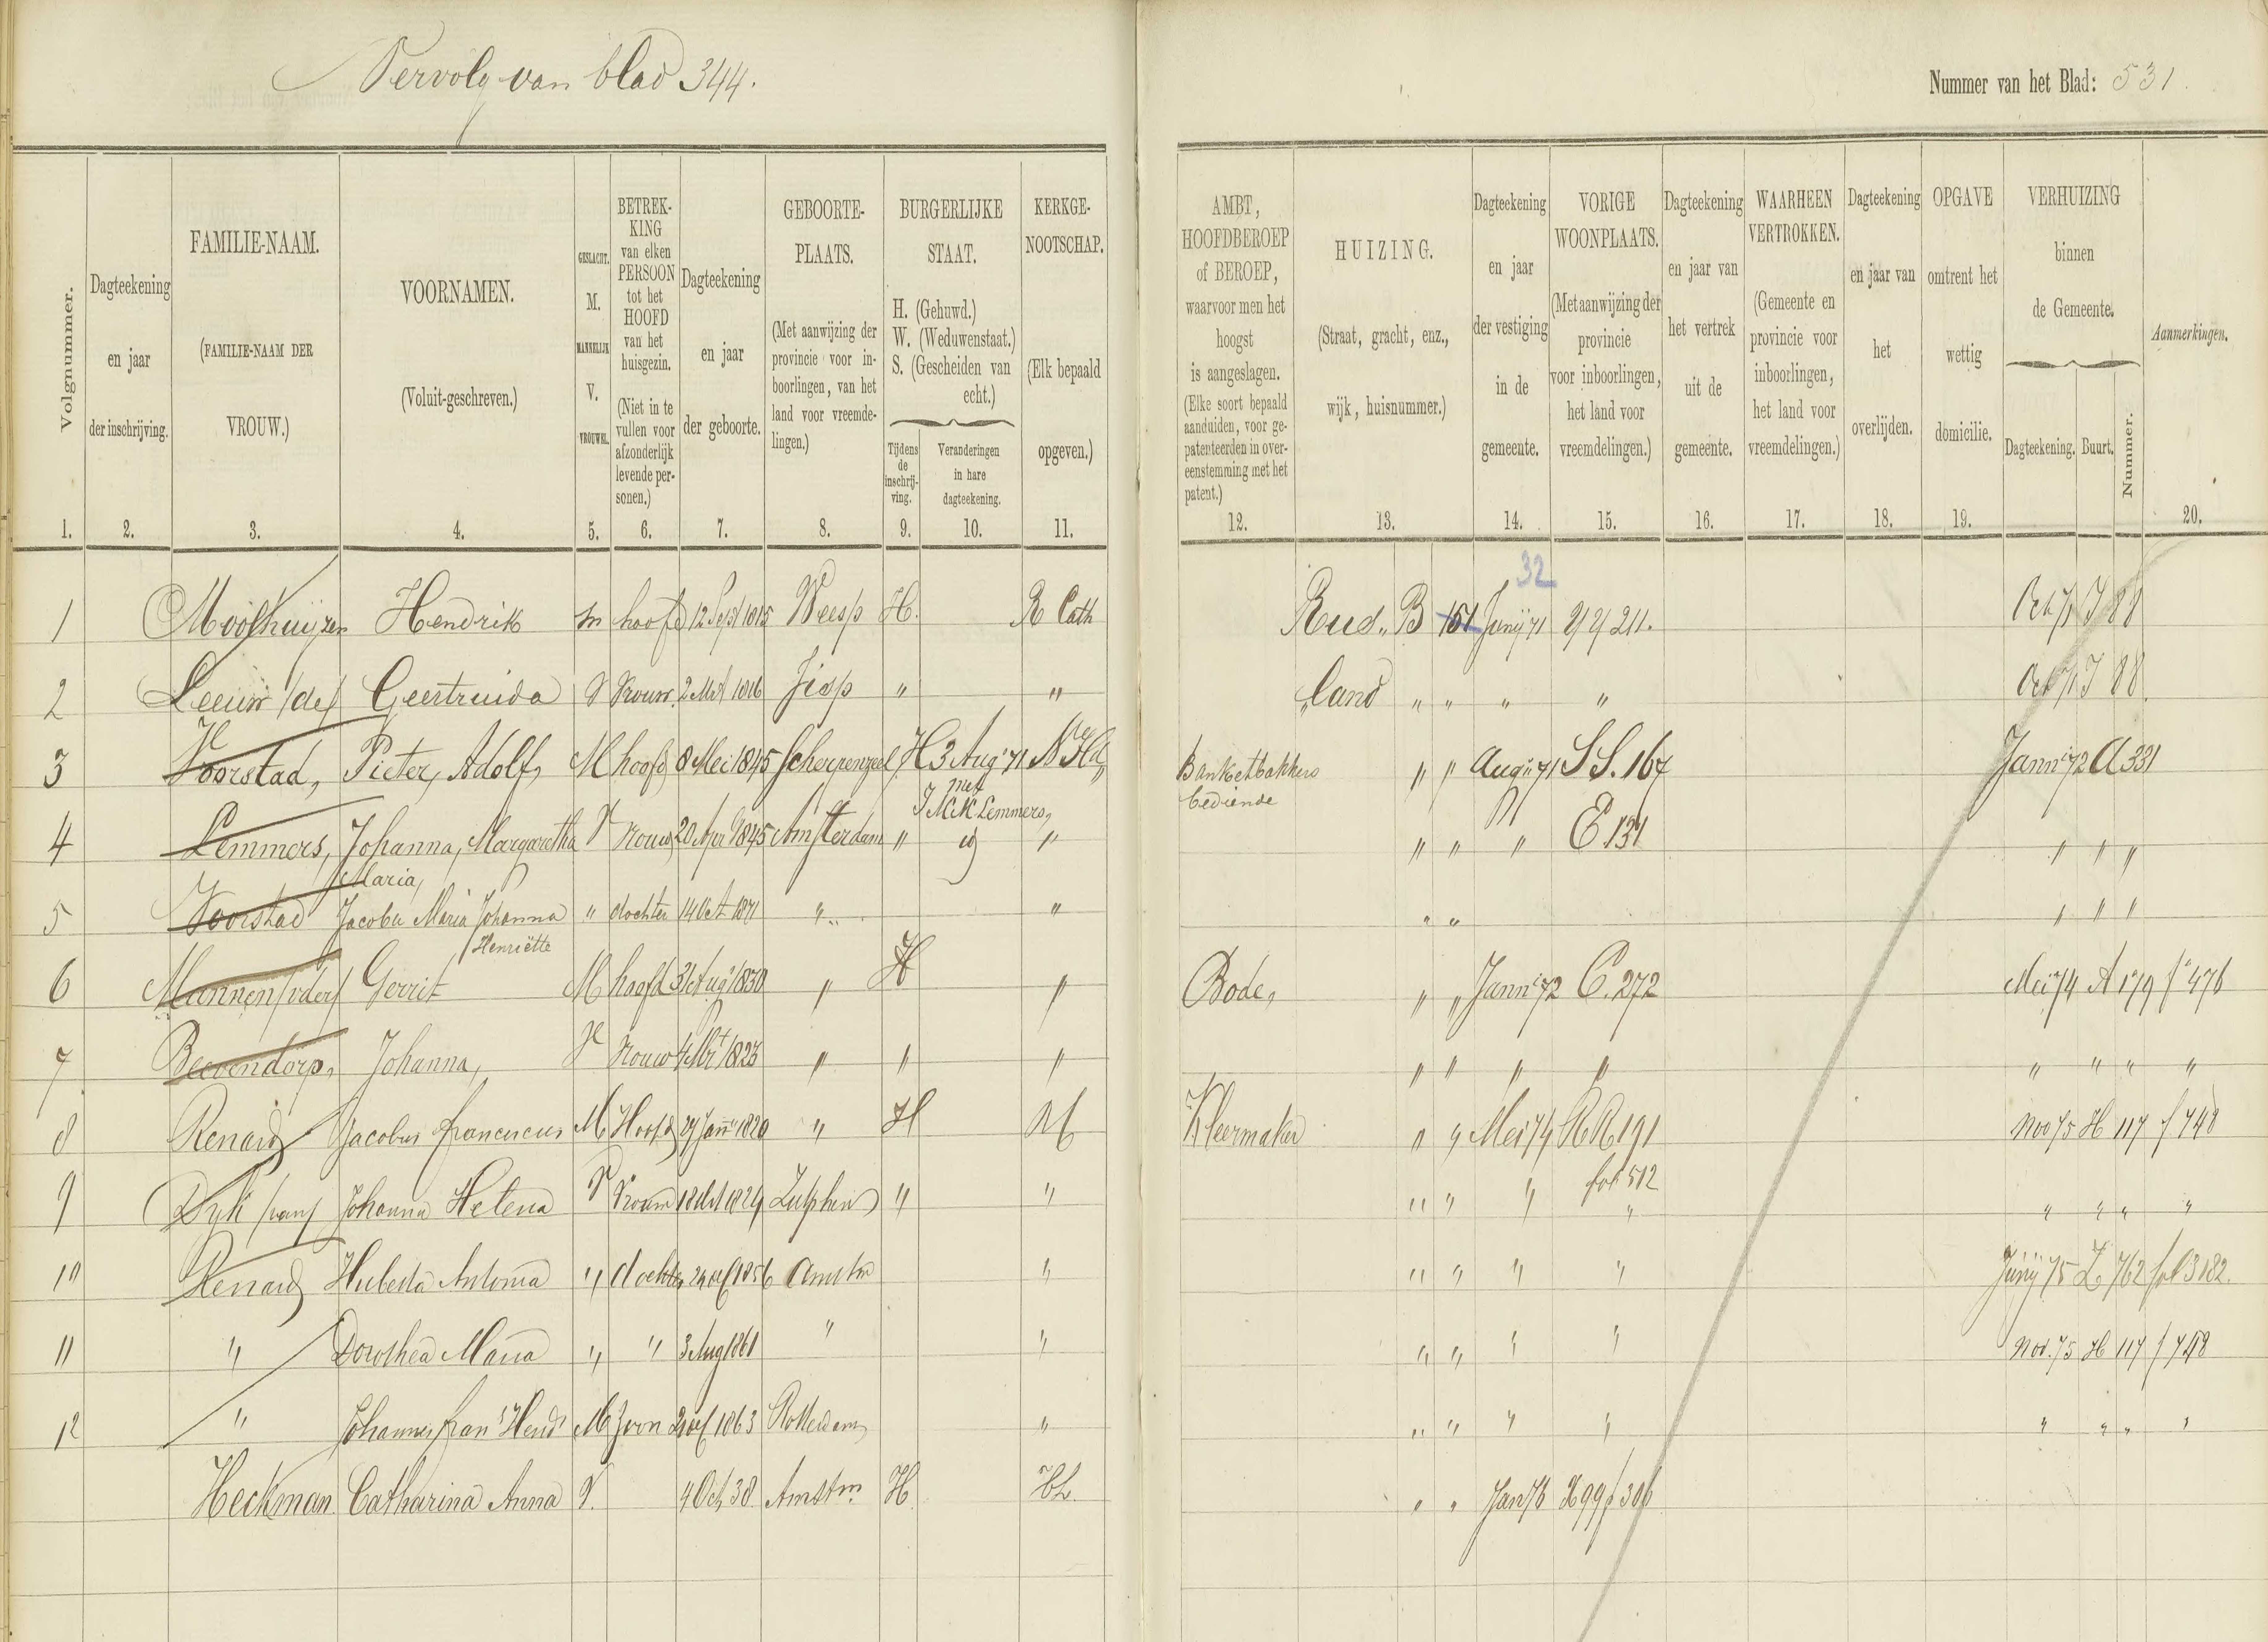 Vervolg van blad 344.
Nummer van het Blad: 531.
Volgnummer.
Dagteekening en jaar der inschrijving.
FAMILIE-NAAM. (FAMILIE-NAAM DER VROUW.)
VOORNAMEN. (Voluit-geschreven.)
GESLACHT. M. MANNELIJK V. VROUWEL.
BETREK-KING van elken PERSOON tot het HOOFD van het huisgezin. (Niet in te vullen voor afzonderlijk levende per-sonen.)
Dagteekening en jaar der geboorte.
GEBOORTE-PLAATS. (Met aanwijzing der provincie voor in-boorlingen, van het land voor vreemde-lingen.)
BURGERLIJKE STAAT. H. (Gehuwd.) W. (Weduwenstaat.) S. (Gescheiden van echt.)
Tijdens de inschrij-ving.
Veranderingen in hare dagteekening.
KERKGE-NOOTSCHAP. (Elk bepaald opgeven.)
AMBT, HOOFDBEROEP of BEROEP, waarvoor men het hoogst is aangeslagen. (Elke soort bepaald aanduiden, voor ge-patenteerden in over-eenstemming met het patent.)
HUIZING. (Straat, gracht, enz., wijk, huisnummer.)
Dagteekening en jaar der vestiging in de gemeente.
VORIGE WOONPLAATS. (Met aanwijzing der provincie voor inboorlingen, het land voor vreemdelingen.)
Dagteekening en jaar van het vertrek uit de gemeente.
WAARHEEN VERTROKKEN. (Gemeente en provincie voor inboorlingen, het land voor vreemdelingen.)
Dagteekening en jaar van het overlijden.
OPGAVE omtrent het wettig domicilie.
VERHUIZING binnen de Gemeente.
Dagteekening. Buurt. Nummer.
Aanmerkingen.
1. 2. 3. 4. 5. 6. 7. 8. 9. 10. 11. 12. 13. 14. 15. 16. 17. 18. 19. 20.
32
1 Moolhuijzen Hendrik m hoofd 12 Sept 1815 Weesp H. R Cath B 151 Junij 71 YY 211. Oct 71 J 88
2 Leeuw (de) Geertruida V Vrouw 2 Mrt 1816 Jisp " " Land " " " " Oct 71 J 88.
3 Voorstad, Pieter, Adolf, M hoofd 8 Mei 1845 Scherpenzeel H 3 Aug 71 N Hd, Banketbakkers " " Aug 71 SS. 167 Jann 72 A 331
met
bediende
J M K Lemmers,
4 Lemmers, Johanna, Margaretha V Vrouw 20 Apr 1845 Amsterdam " " " " " E 131 " " "
Maria,
5 Voorstad Jacoba Maria Johanna " dochter 14 Oct 1871 " " " " " " "
Henriëtte
6 Mannen (v der) Gerrit M hoofd 31 Aug 1830 " H " Bode, " " Jann 72 C. 272 Mei 74 A 179 f 476
7 Beevendorp, Johanna, V Vrouw 4 Mrt 1823 " " " " " " " " " " "
8 Renard Jacobus franciscus M Hoofd 27 Jann 1820 " H Kleermaker " " Mei 74 RR 191 Nov 75 H 117 f 748
fol 512
9 Dyk (van) Johanna Helena V Vrouw 18 Oct 1824 Zutphen " " " " " " " " " "
10 Renard Huberta Antonia " dochter 1856 Amstm " " " " " Junij 75 Z 762 fol 3182.
11 " Dorothea Maria " " 3 Aug 1861 " " " " " " Nov. 75 H 117 f 748
12 " Johannes fran Hend M Zoon 1863 Rotterdam " " " " " " " " "
Heckman Catharina Anna V. 4 Oct 38 Amstm H. HL. " " Jan 76 X 99 f 306